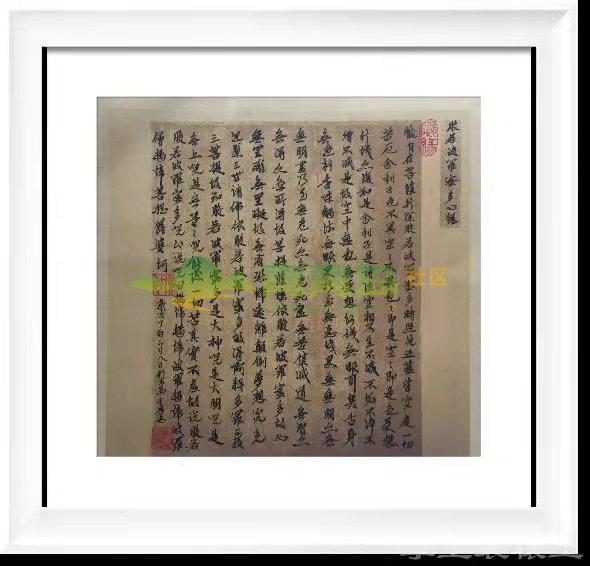 般若波羅蜜多心經
觀自在菩薩行深般若波羅蜜多時照見五蘊皆空度一切
苦厄舍利子色不異空空不異色色即是空空即是色受想
行識亦復如是舍利子是諸法空相不生不滅不垢不淨不
增不減是故空中無色無受想行識無眼耳鼻舌身
無色聲香味觸法無眼界乃至無意識界無無明亦無
無明盡乃至無老死亦無老死盡無苦集滅道無智亦
無得以無所得故菩提薩埵依般若波羅蜜多故心
無罣礙無罣礙故無有恐怖遠離顛倒夢想究竟
涅槃三世諸佛依般若波羅蜜多故得阿耨多羅三藐
三菩提故知般若波羅蜜多是大神咒是大明咒是
無上咒是無等等咒能除一切苦真實不虛故說般若
般若波羅蜜多咒即說咒曰揭諦揭諦波羅揭諦波羅
僧揭諦菩提薩婆訶
社区